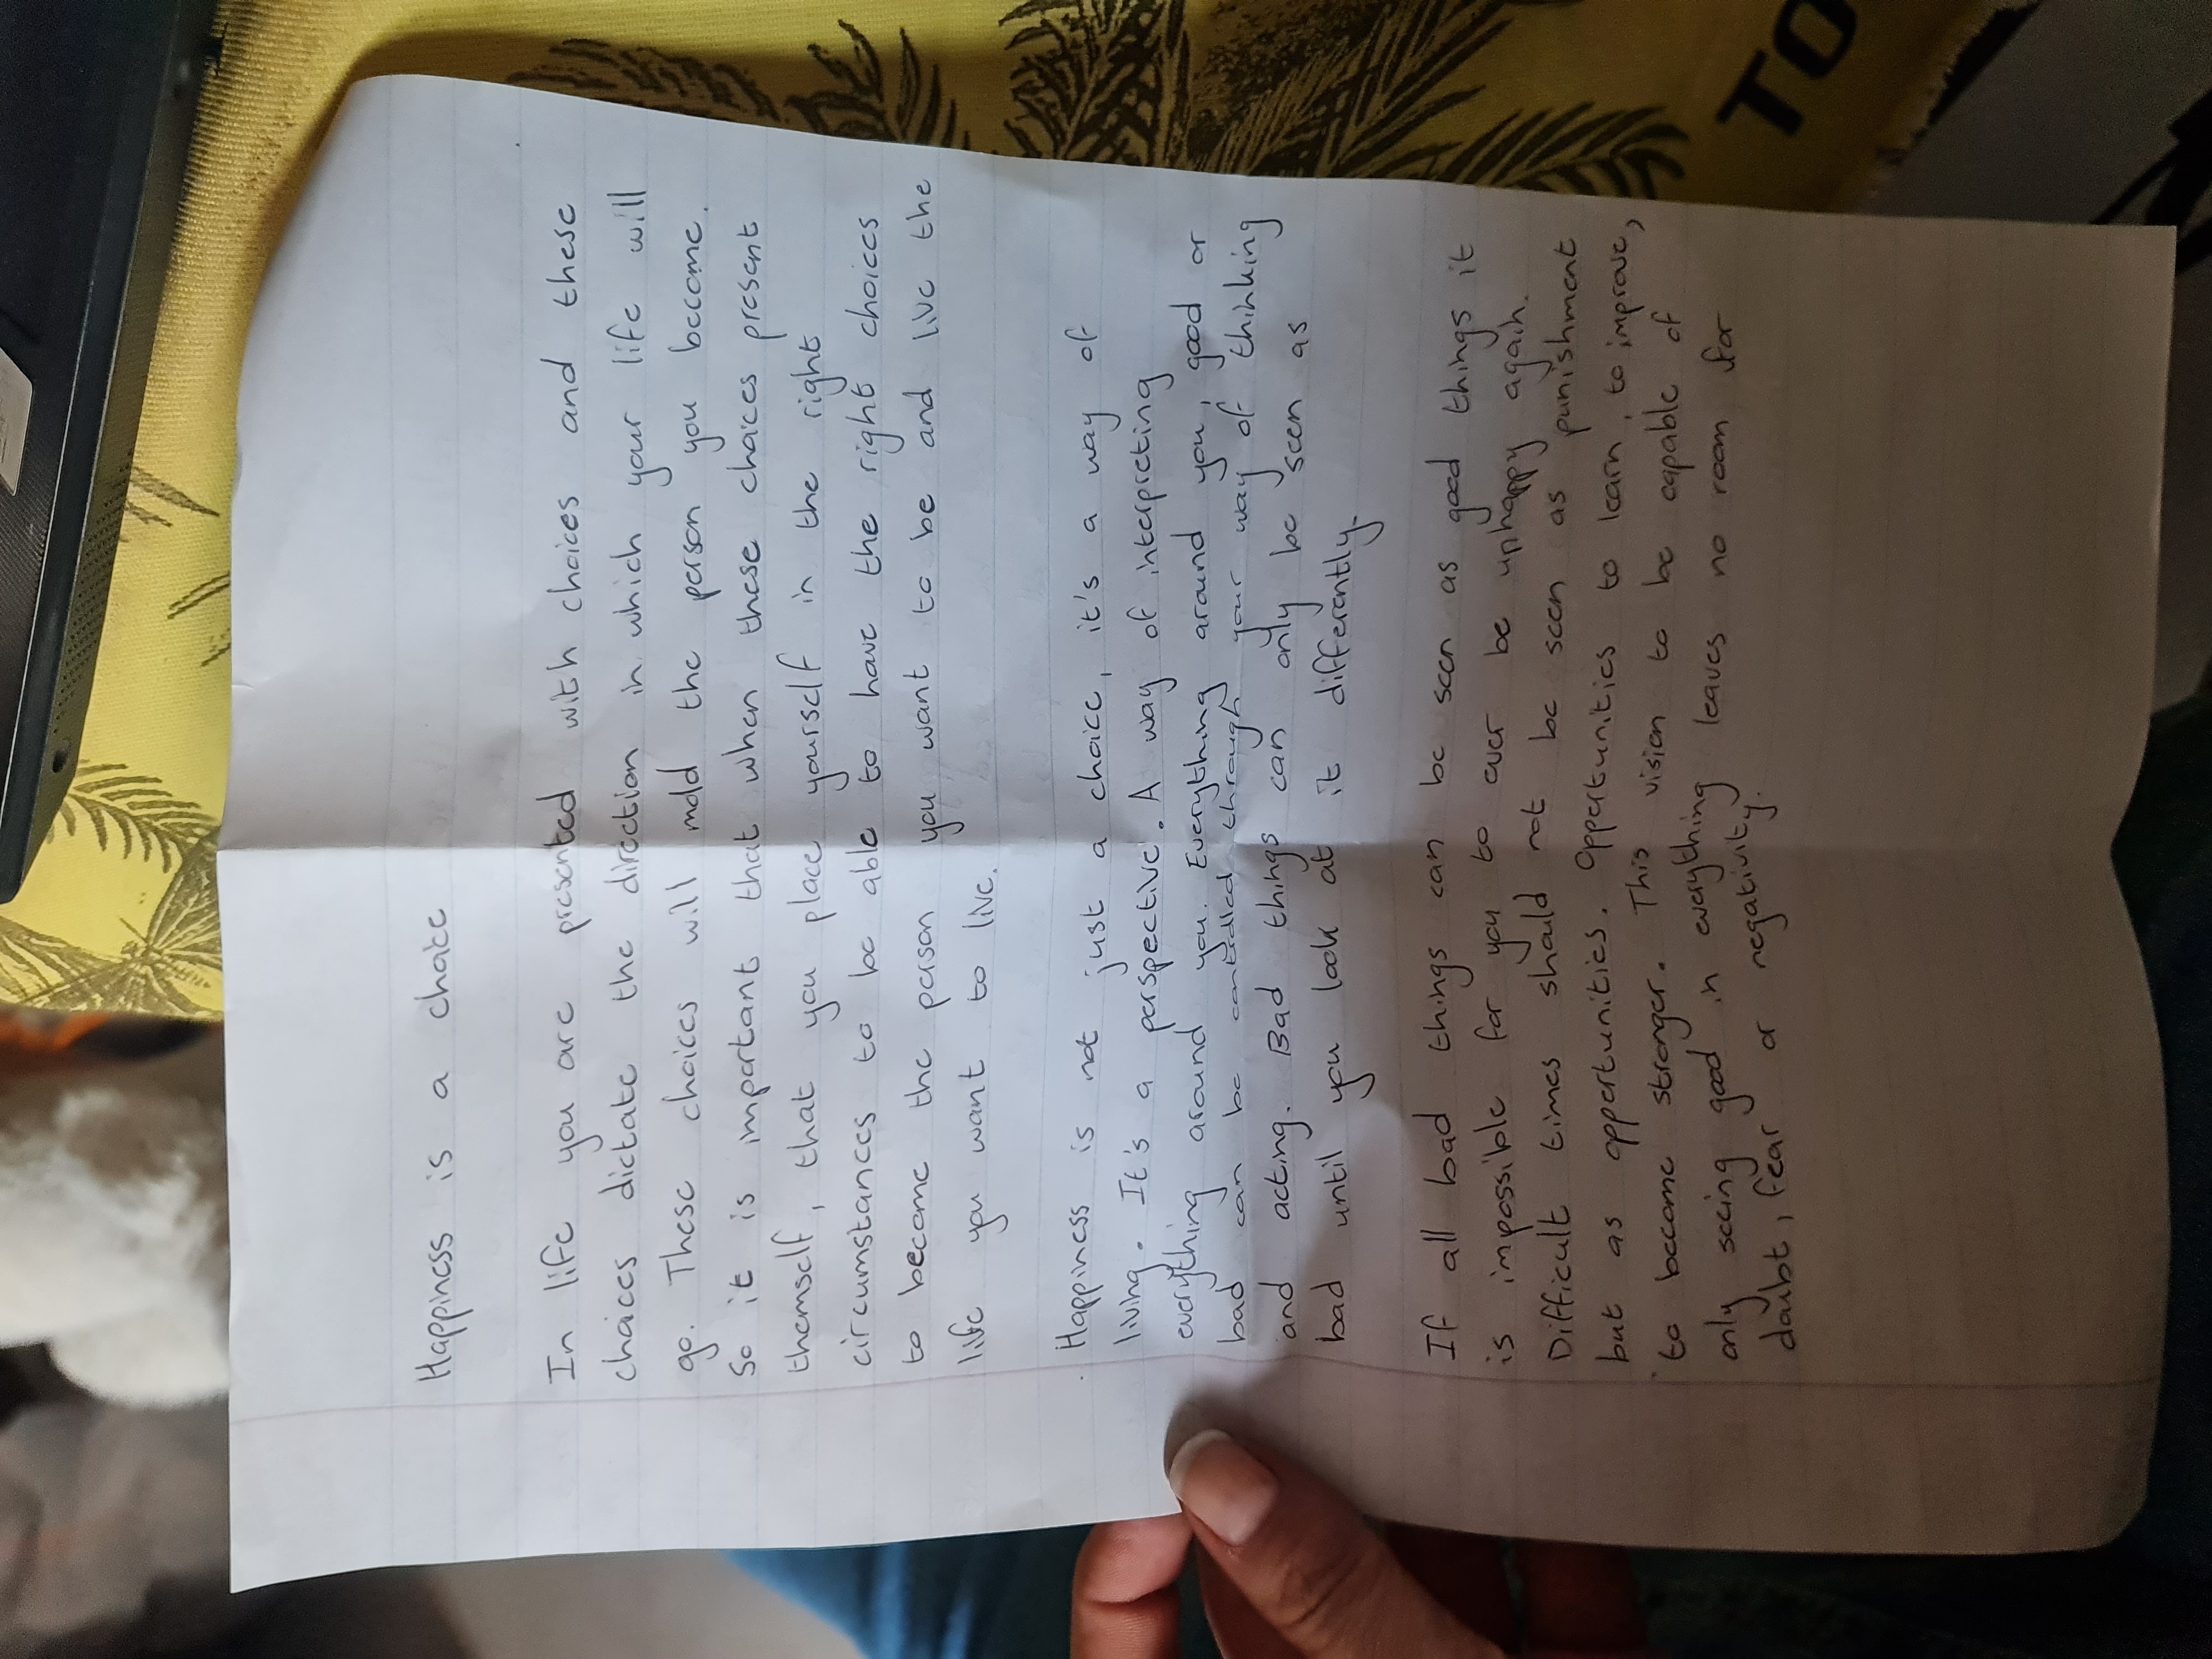 Happiness is a choice
In life you are presented with choices and these
choices dictate the direction in which your life will
go. These choices will mold the person you become.
So it is important that when these choices present
themself, that you place yourself in the right
circumstances to be able to have the right choices
to become the person you want to be and live the
life you want to live.
Happiness is not just a choice, it's a way of
living. It's a perspective. A way of interpreting
everything around you. Everything around you, good or
bad can be through your way of thinking
and acting. Bad things can only be seen as
bad until you look at it differently.
If all bad things can be seen as good things it
is impossible for you to ever be unhappy again.
Difficult times should not be seen as punishment
but as oppertunities. Oppertunities to learn, to improve,
to become stronger. This vision to be capable of
only seeing good in everything leaves no room for
doubt, fear or negativity.
TO